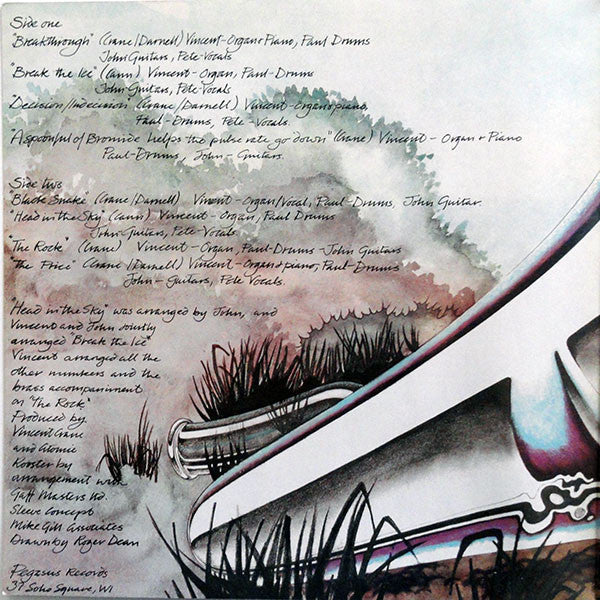 Side one
"Breakthrough" (Crane/Darnell) Vincent-Organ & Piano, Paul Drums
John Guitars, Pete-Vocals
"Break the Ice" (Cann) Vincent-Organ, Paul-Drums
John Guitars, Pete Vocals
"Decision/Indecision" (Crane/Darnell) Vincent-Organ & piano,
Paul-Drums, Pete-Vocals.
"A spoonful of Bromide helps the pulse rate go down" (Crane) Vincent - Organ + Piano
Paul-Drums, John-Guitars.
Side two
"Black Snake" (Crane/Darnell) Vincent-Organ/Vocal, Paul Drums, John Guitar.
"Head in the Sky" (Cann) Vincent-Organ, Paul Drums
John Guitars, Pete Vocals
"The Rock" (Crane) Vincent-Organ, Paul-Drums-John Guitars
"The Price" (Crane/Darnell) Vincent-Organ & piano, Paul-Drums
John-Guitars, Pete Vocals.
"Head in the Sky" was arranged by John, and
Vincent and John jointly
arranged "Break the Ice"
Vincent arranged all the
other numbers and the
brass accompaniment
on "The Rock"
Produced by
Vincent Crane
and Atomic
Rooster by
arrangement with
Gaff Masters Ltd.
Sleeve Concept
Mike Gill Associates
Drawn by Roger Dean
Pegasus Records
37 Soho Square, W1